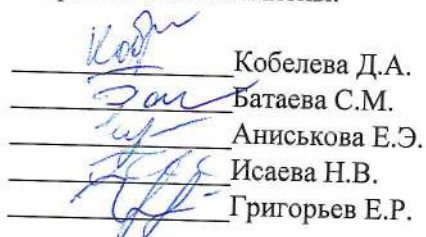 Кобелева Д.А.
Батаева С.М.
Аниськова Е.Э.
Исаева Н.В.
Григорьев Е.Р.